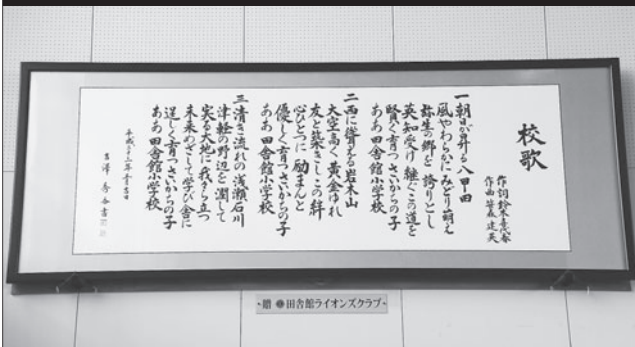 校歌
作詞 鈴木喜代春
作曲 笹森建英
一 朝日が昇る八甲田
風やわらかにみどり萌え
弥生の郷を 誇りとし
英知受け 継ぐこの道を
賢く育つ さいからの子
ああ 田舎館小学校
二 西に聳ゆる岩木山
大空高く 黄金ゆれ
友と築きし この絆
心ひとつに 励まんと
優しく育つ さいからの子
ああ 田舎館小学校
三 清き流れの 浅瀬石川
津軽の野辺を 潤して
実る大地に 我ら立つ
未来めざして 学び舎に
逞しく育つ さいからの子
ああ 田舎館小学校
贈 田舎館ライオンズクラブ